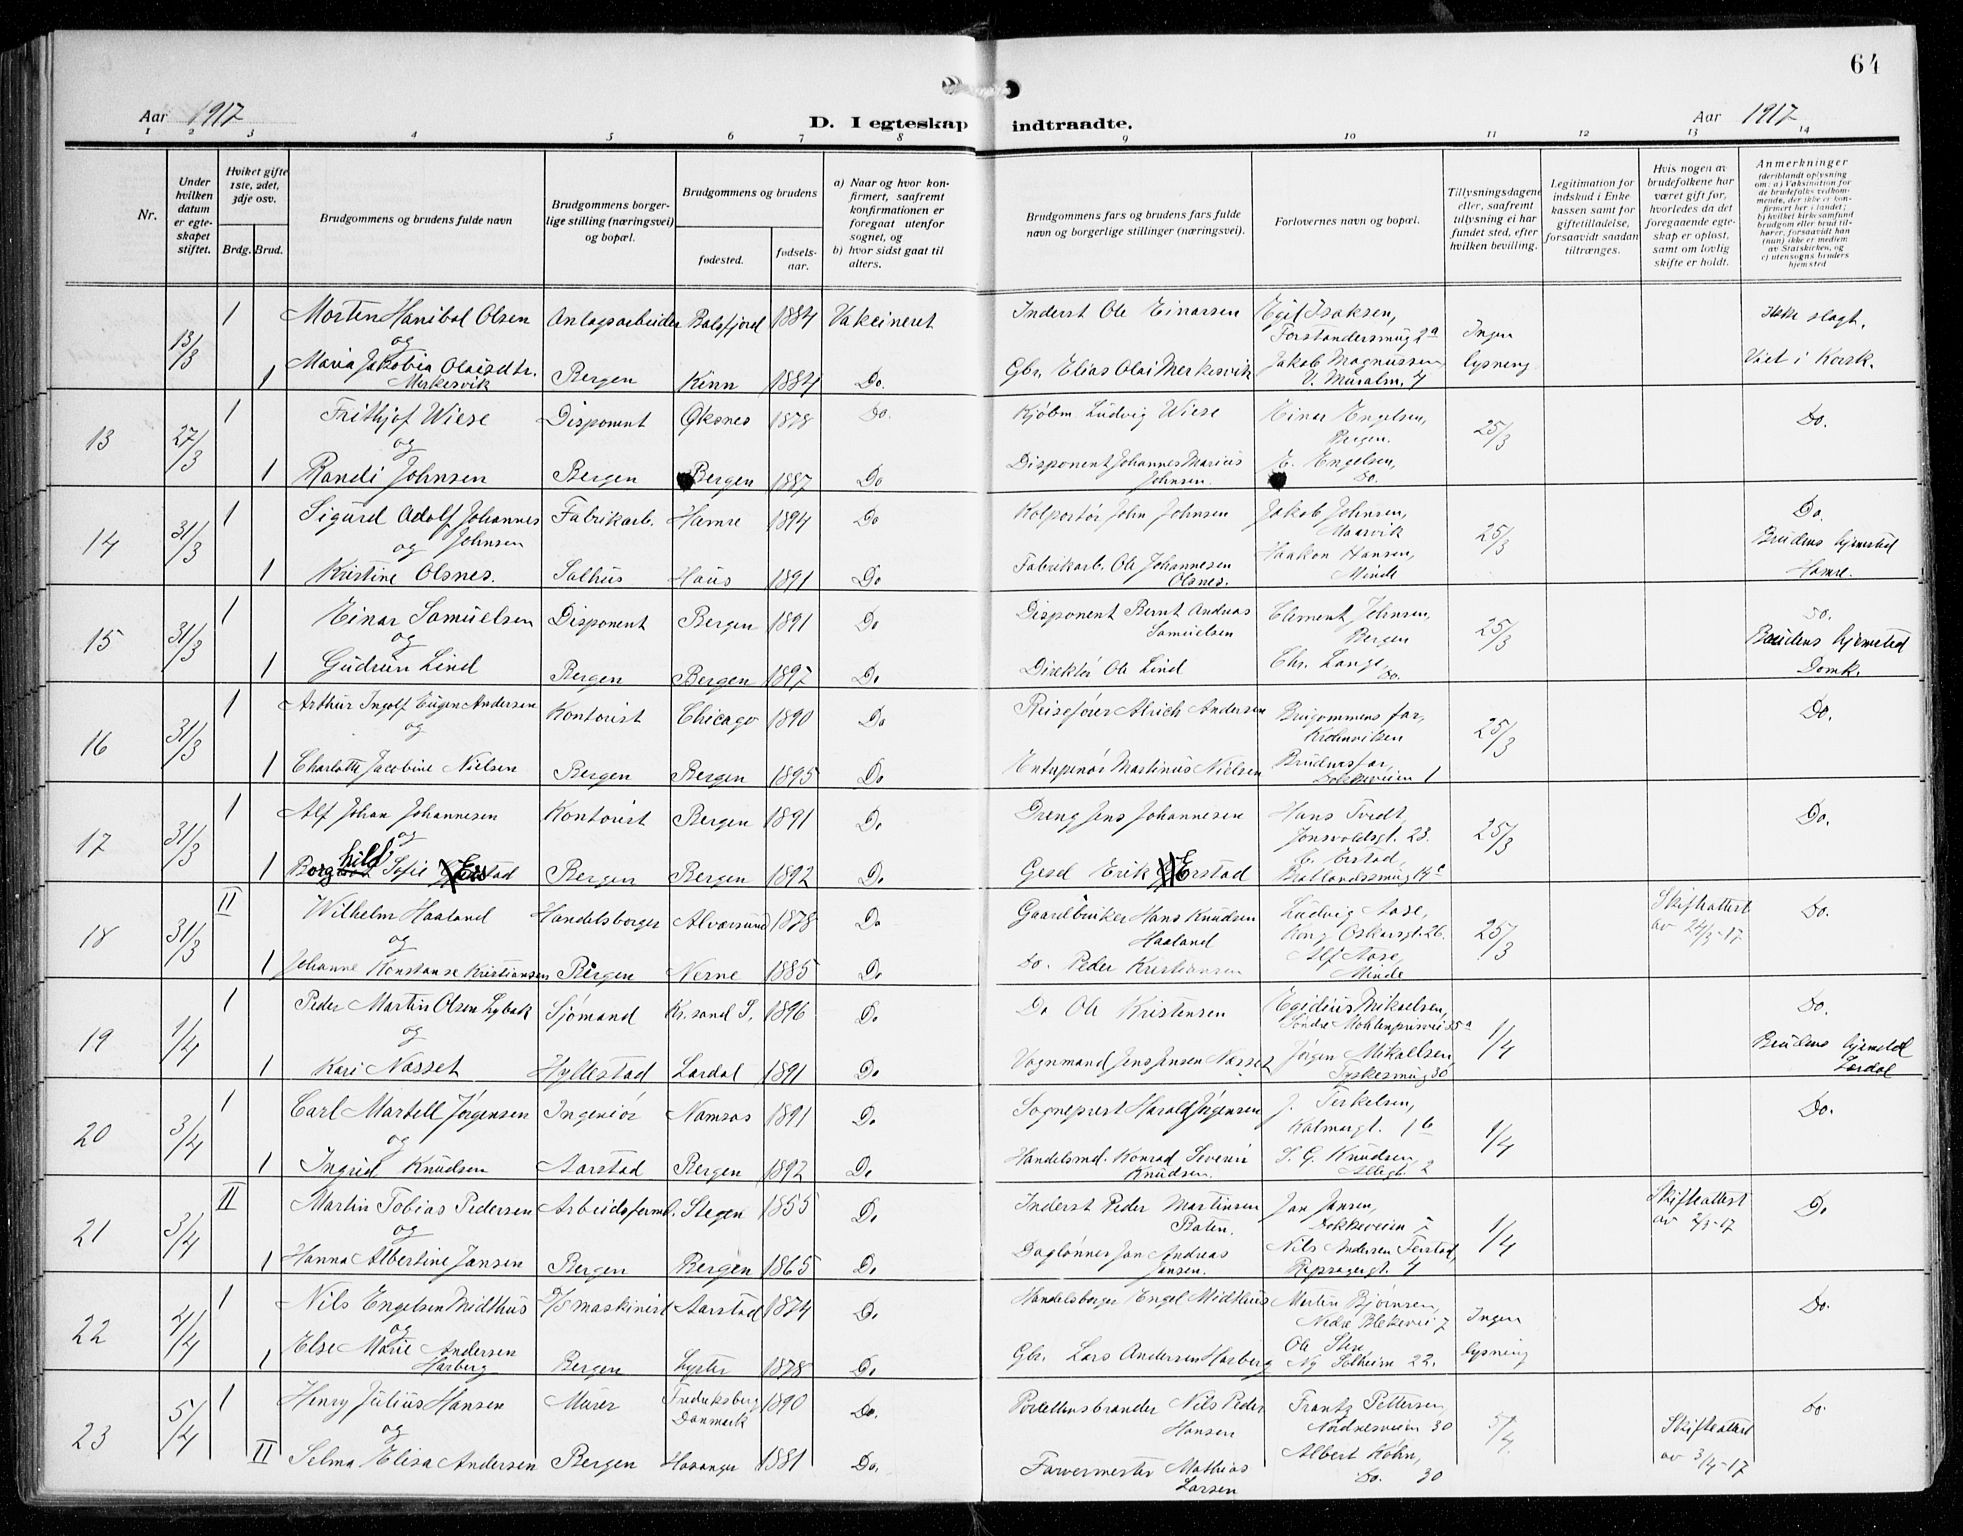 64
Aar 1917
D. I egteskap indtraadte.
Aar 1917
1 2 3 4 5 6 7 8 9 10 11 12 13 14
Nr.
Under hvilken datum er egteskapet stiftet.
Hviket gifte 1ste, 2det, 3dje osv.
Brdg. Brud.
Brudgommens og brudens fulde navn
Brudgommens borgerlige stilling (næringsvei) og bopæl.
Brudgommens og brudens
fødested.
fødselsaar.
a) Naar og hvor konfirmert, saafremt konfirmationen er foregaat utenfor sognet, og
b) hvor sidst gaat til alters.
Brudgommens fars og brudens fars fulde navn og borgerlige stillinger (næringsvei).
Forlovernes navn og bopæl.
Tillysningsdagene eller, saafremt tillysning ei har fundet sted, efter hvilken bevilling.
Legitimation for indskud i Enkekassen samt for giftetilladelse, forsaavidt saadan tiltrænges.
Hvis nogen av brudefolkene har været gift før, hvorledes da det foregaaende egteskap er opløst, samt om lovlig skifte er holdt.
Anmerkninger (deriblandt oplysning om: a) Vaksination for de brudefolks vedkommende, der ikke er konfirmert her i landet; b) hvilket kirkesamfund brudgom eller brud tilhører, forsaavidt han (hun) ikke er medlem av Statskirken, og c) utensogns bruders hjemsted
13/3 1 Morten Hanibal Olsen Anlagsarbeider Balsfjord 1884 Vakcineret Inderst Ole Einarsen Egil Isaksen, Forstandersmug 2a Ingen Ikke slagt.
og
1 Maria Jakobia Olaisdtr. Merkesvik Bergen Kinn 1884 Do. Gbr. Elias Olai Merkesvik Jakob Magnussen, V. Muralm. 4 lysning Viet i Korsk.
13 27/3 1 Frithjof Wiese Disponent Øksnes 1878 Do. Kjøbm. Ludvig Wiese Einar Engelsen, Bergen. 25/3 Do.
og
1 Randi Johnsen Bergen Bergen 1887 Do Disponent Johannes Marius Johnsen. E. Engelsen, Do.
14 31/3 1 Sigurd Adolf Johannes Johnsen Fabrikarb. Hamre 1894 Do Kolportør John Johnsen Jakob Johnsen, Maarvik 25/3 Do.
og
1 Kristine Olsnes. Salhus Haus 1891 Do Fabrikarb. Ole Johannesen Olsnes. Haakon Hansen, Minde Brudens hjemsted Hamre.
15 31/3 1 Einar Samuelsen Disponent Bergen 1891 Do Disponent Bernt Andreas Samuelsen Clement Johnsen, Bergen 25/3 Do.
og
1 Gudrun Lind Bergen Bergen 1897 Do Direktør Ole Lind Chr. Lange, Do. Brudens hjemsted Domk.
16 31/3 1 Arthur Ingolf Eugen Andersen Kontorist Chicago 1890 Do Reisefører Alrich Andersen Brugommens far, Kronviken 25/3 Do.
og
1 Charlotte Jacobine Nielsen Bergen Bergen 1895 Do Entrepenør Martinus Nielsen Brudens far, Dokkeveien 1
17 31/3 1 Alf Johan Johannesen Kontorist Bergen 1891 Do Dreng Jens Johannesen Hans Tvedt, Jonsvoldsgt. 23. 25/3 Do.
og
1 Borghild Sofie Erstad Bergen Bergen 1892 Do Gesd Erik Erstad E. Erstad, Brøllandssmug 14c
18 31/3 II Wilhelm Haaland Handelsborger Alversund 1878 Do Gaardbruker Hans Knudsen Haaland Ludvig Aase, Kong Oskarsgt. 26. 25/3 Skifteattest av 24/3-17 Do.
og
1 Johanne Konstanse Kristiansen Bergen Nerne 1885 Do Do. Peder Kristiansen Alf Aase, Minde
19 1/4 1 Peder Martin Olsen Lybæk Sjømand Kr.sand S. 1896 Do Do Ole Kristensen Egidius Mikaelsen, Søndre Møhlenprisvei 35a 1/4 Do.
og
1 Kari Næsset Hyllestad Lærdal 1891 Do Vognmand Jens Jensen Næsset Jørgen Mikaelsen, Tyskesmug 30 Brudens hjemsted Lærdal
20 3/4 1 Carl Martell Jørgensen Ingeniør Namsos 1891 Do Sogneprest Harald Jørgensen J. Terkelsen, Kalmargt. 1b 1/4 Do.
og
1 Ingrid Knudsen Aarstad Bergen 1892 Do Handelsmd. Konrad Severin Knudsen. S. G. Knudsen, Allegt. 2
21 3/4 II Martin Tobias Pedersen Arbeidsformd. Stegen 1855 Do Inderst Peder Martinsen Baten. Jan Jansen, Dokkeveien 2 1/4 Skifteattest av 2/3-17 Do
og
1 Hanna Albertine Jansen Bergen Bergen 1865 Do Daglønner Jan Andreas Jansen. Nils Andersen Terstad, Repslagergt. 4
22 4/4 1 Nils Engelsen Midthus D/S maskinist Aarstad 1874 Do Handelsborger Engel Midthus Martin Bjørnsen, Nedre Blekevei 7 Ingen Do.
og
1 Else Marie Andersen Harberg Bergen Lyster 1878 Do Gbr. Lars Andersen Harberg Ole Sten, Ny Solheim 22. lysning
23 5/4 1 Henry Julius Hansen Murer Fredriksberg Danmark 1890 Do. Portellensbrander Nils Peder Hansen Frantz Pettersen, Nordnesveien 30 5/4. Skifteattest av 3/4-17 Do.
og
II Selma Elisa Andersen Bergen Hosanger 1881 Do. Farvermester Mathias Larsen Albert Køhn, Do. 30